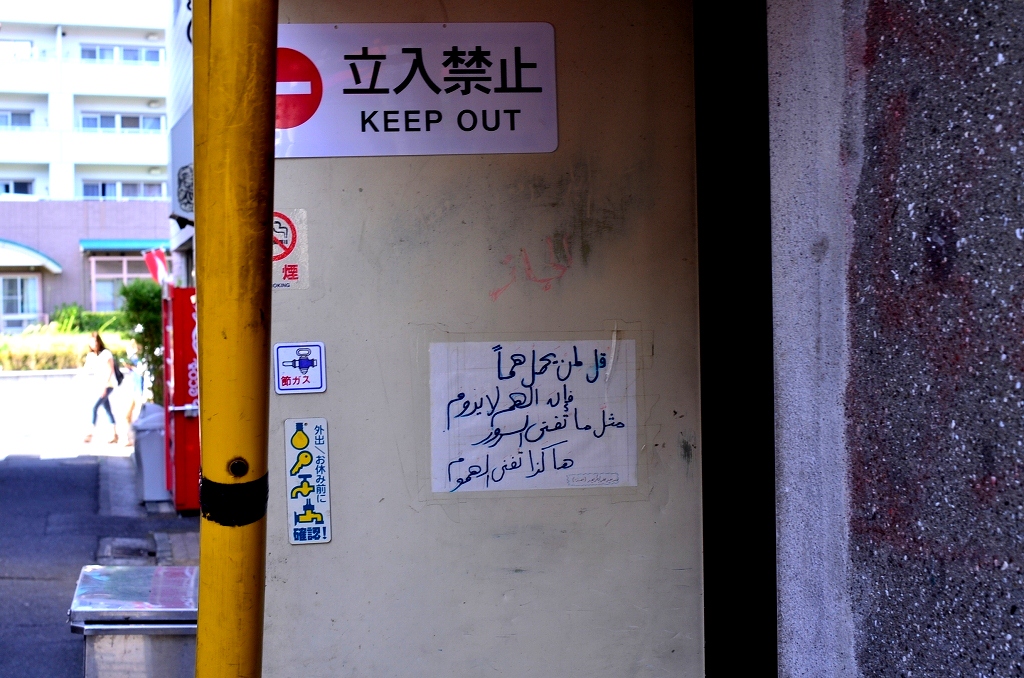 立入禁止
KEEP OUT
煙
節ガス
外出/お休み前に
確認!
قل لمن يحمل هماً
فإن الهم لا يدوم
مثل ما تفنى السرور
هاكذا تفنى الهموم